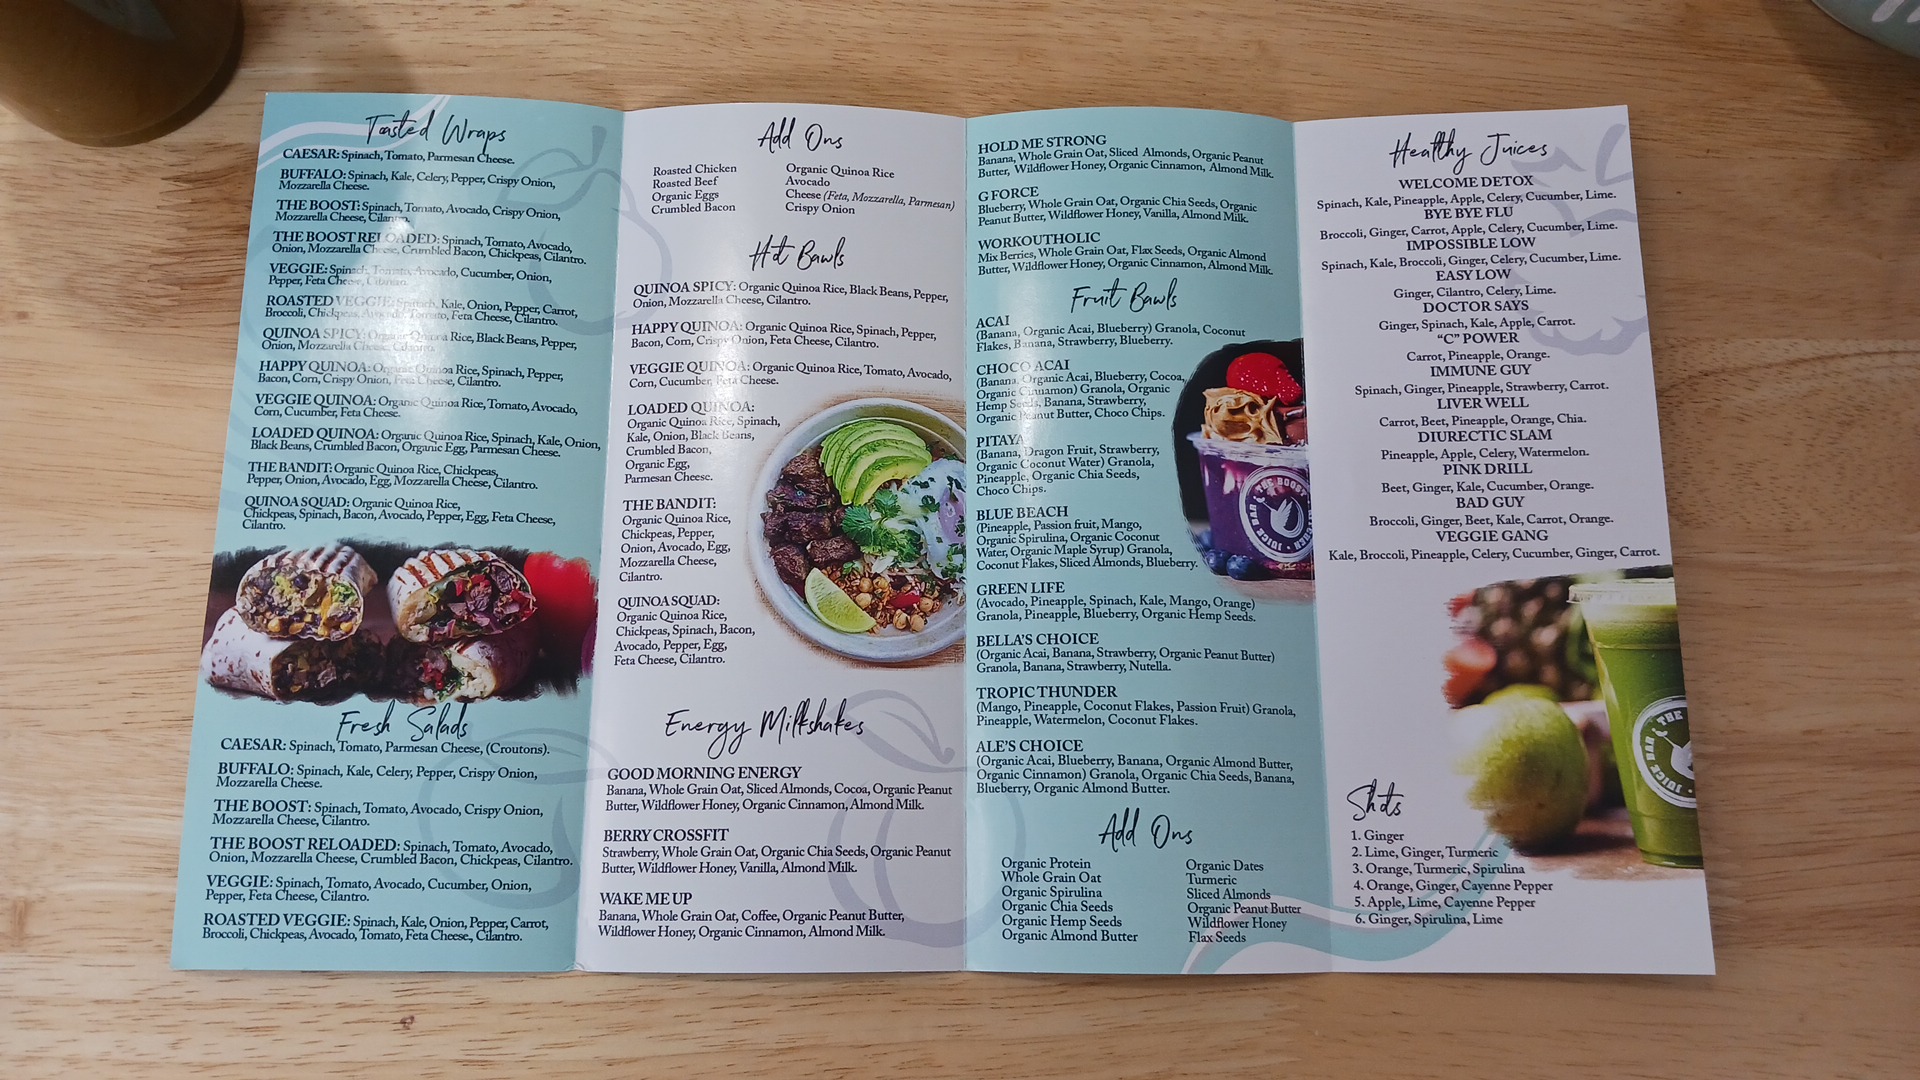 Tasted Wraps
CAESAR: Spinach, Tomato, Parmesan Cheese.
BUFFALO: Spinach, Kale, Celery, Pepper, Crispy Onion,
Mozzarella Cheese.
THE BOOST: Spinach, Tomato, Avocado, Crispy Onion,
Mozzarella Cheese, Cilantro.
THE BOOST RELOADED: Spinach, Tomato, Avocado,
Onion, Mozzarella Cheese, Crumbled Bacon, Chickpeas, Cilantro.
VEGGIE: Spinach, Tomato, Avocado, Cucumber, Onion,
Pepper, Feta Cheese, Cilantro.
ROASTED VEGGIE: Spinach, Kale, Onion, Pepper, Carrot,
Broccoli, Chickpeas, Avocado, Tomato, Feta Cheese, Cilantro.
QUINOA SPICY: Organic Quinoa Rice, Black Beans, Pepper,
Onion, Mozzarella Cheese, Cilantro.
HAPPY QUINOA: Organic Quinoa Rice, Spinach, Pepper,
Bacon, Corn, Crispy Onion, Feta Cheese, Cilantro.
VEGGIE QUINOA: Organic Quinoa Rice, Tomato, Avocado,
Corn, Cucumber, Feta Cheese.
LOADED QUINOA: Organic Quinoa Rice, Spinach, Kale, Onion,
Black Beans, Crumbled Bacon, Organic Egg, Parmesan Cheese.
THE BANDIT: Organic Quinoa Rice, Chickpeas,
Pepper, Onion, Avocado, Egg, Mozzarella Cheese, Cilantro.
QUINOA SQUAD: Organic Quinoa Rice,
Chickpeas, Spinach, Bacon, Avocado, Pepper, Egg, Feta Cheese,
Cilantro.
Fresh Salads
CAESAR: Spinach, Tomato, Parmesan Cheese, (Croutons).
BUFFALO: Spinach, Kale, Celery, Pepper, Crispy Onion,
Mozzarella Cheese.
THE BOOST: Spinach, Tomato, Avocado, Crispy Onion,
Mozzarella Cheese, Cilantro.
THE BOOST RELOADED: Spinach, Tomato, Avocado,
Onion, Mozzarella Cheese, Crumbled Bacon, Chickpeas, Cilantro.
VEGGIE: Spinach, Tomato, Avocado, Cucumber, Onion,
Pepper, Feta Cheese, Cilantro.
ROASTED VEGGIE: Spinach, Kale, Onion, Pepper, Carrot,
Broccoli, Chickpeas, Avocado, Tomato, Feta Cheese., Cilantro.
Add Ons
Roasted Chicken
Roasted Beef
Organic Eggs
Crumbled Bacon
Organic Quinoa Rice
Avocado
Cheese (Feta, Mozzarella, Parmesan)
Crispy Onion
Hot Bawls
QUINOA SPICY: Organic Quinoa Rice, Black Beans, Pepper,
Onion, Mozzarella Cheese, Cilantro.
HAPPY QUINOA: Organic Quinoa Rice, Spinach, Pepper,
Bacon, Corn, Crispy Onion, Feta Cheese, Cilantro.
VEGGIE QUINOA: Organic Quinoa Rice, Tomato, Avocado,
Corn, Cucumber, Feta Cheese.
LOADED QUINOA:
Organic Quinoa Rice, Spinach,
Kale, Onion, Black Beans,
Crumbled Bacon,
Organic Egg,
Parmesan Cheese.
THE BANDIT:
Organic Quinoa Rice,
Chickpeas, Pepper,
Onion, Avocado, Egg,
Mozzarella Cheese,
Cilantro.
QUINOA SQUAD:
Organic Quinoa Rice,
Chickpeas, Spinach, Bacon,
Avocado, Pepper, Egg,
Feta Cheese, Cilantro.
Energy Milkshakes
GOOD MORNING ENERGY
Banana, Whole Grain Oat, Sliced Almonds, Cocoa, Organic Peanut
Butter, Wildflower Honey, Organic Cinnamon, Almond Milk.
BERRY CROSSFIT
Strawberry, Whole Grain Oat, Organic Chia Seeds, Organic Peanut
Butter, Wildflower Honey, Vanilla, Almond Milk.
WAKE ME UP
Banana, Whole Grain Oat, Coffee, Organic Peanut Butter,
Wildflower Honey, Organic Cinnamon, Almond Milk.
HOLD ME STRONG
Banana, Whole Grain Oat, Sliced Almonds, Organic Peanut
Butter, Wildflower Honey, Organic Cinnamon, Almond Milk.
G FORCE
Blueberry, Whole Grain Oat, Organic Chia Seeds, Organic
Peanut Butter, Wildflower Honey, Vanilla, Almond Milk.
WORKOUTHOLIC
Mix Berries, Whole Grain Oat, Flax Seeds, Organic Almond
Butter, Wildflower Honey, Organic Cinnamon, Almond Milk.
Fruit Bawls
ACAI
(Banana, Organic Acai, Blueberry) Granola, Coconut
Flakes, Banana, Strawberry, Blueberry.
CHOCO ACAI
(Banana, Organic Acai, Blueberry, Cocoa,
Organic Cinnamon) Granola, Organic
Hemp Seeds, Banana, Strawberry,
Organic Peanut Butter, Choco Chips.
PITAYA
(Banana, Dragon Fruit, Strawberry,
Organic Coconut Water) Granola,
Pineapple, Organic Chia Seeds,
Choco Chips.
BLUE BEACH
(Pineapple, Passion fruit, Mango,
Organic Spirulina, Organic Coconut
Water, Organic Maple Syrup) Granola,
Coconut Flakes, Sliced Almonds, Blueberry.
GREEN LIFE
(Avocado, Pineapple, Spinach, Kale, Mango, Orange)
Granola, Pineapple, Blueberry, Organic Hemp Seeds.
BELLA'S CHOICE
(Organic Acai, Banana, Strawberry, Organic Peanut Butter)
Granola, Banana, Strawberry, Nutella.
TROPIC THUNDER
(Mango, Pineapple, Coconut Flakes, Passion Fruit) Granola,
Pineapple, Watermelon, Coconut Flakes.
ALE'S CHOICE
(Organic Acai, Blueberry, Banana, Organic Almond Butter,
Organic Cinnamon) Granola, Organic Chia Seeds, Banana,
Blueberry, Organic Almond Butter.
THE BOOST
JUICE BAR
Add Ons
Organic Protein
Whole Grain Oat
Organic Spirulina
Organic Chia Seeds
Organic Hemp Seeds
Organic Almond Butter
Organic Dates
Turmeric
Sliced Almonds
Organic Peanut Butter
Wildflower Honey
Flax Seeds
Healthy Juices
WELCOME DETOX
Spinach, Kale, Pineapple, Apple, Celery, Cucumber, Lime.
BYE BYE FLU
Broccoli, Ginger, Carrot, Apple, Celery, Cucumber, Lime.
IMPOSSIBLE LOW
Spinach, Kale, Broccoli, Ginger, Celery, Cucumber, Lime.
EASY LOW
Ginger, Cilantro, Celery, Lime.
DOCTOR SAYS
Ginger, Spinach, Kale, Apple, Carrot.
"C" POWER
Carrot, Pineapple, Orange.
IMMUNE GUY
Spinach, Ginger, Pineapple, Strawberry, Carrot.
LIVER WELL
Carrot, Beet, Pineapple, Orange, Chia.
DIURECTIC SLAM
Pineapple, Apple, Celery, Watermelon.
PINK DRILL
Beet, Ginger, Kale, Cucumber, Orange.
BAD GUY
Broccoli, Ginger, Beet, Kale, Carrot, Orange.
VEGGIE GANG
Kale, Broccoli, Pineapple, Celery, Cucumber, Ginger, Carrot.
THE
JUICE BAR
Shots
1. Ginger
2. Lime, Ginger, Turmeric
3. Orange, Turmeric, Spirulina
4. Orange, Ginger, Cayenne Pepper
5. Apple, Lime, Cayenne Pepper
6. Ginger, Spirulina, Lime